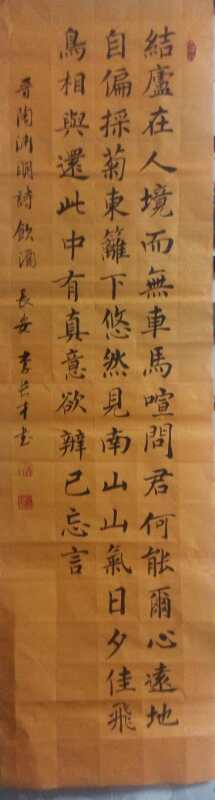 結廬在人境而無車馬喧問君何能爾心遠地
自偏採菊東籬下悠然見南山山氣日夕佳飛
鳥相與還此中有真意欲辨已忘言
晉陶淵明詩飲酒 長安 李 才書